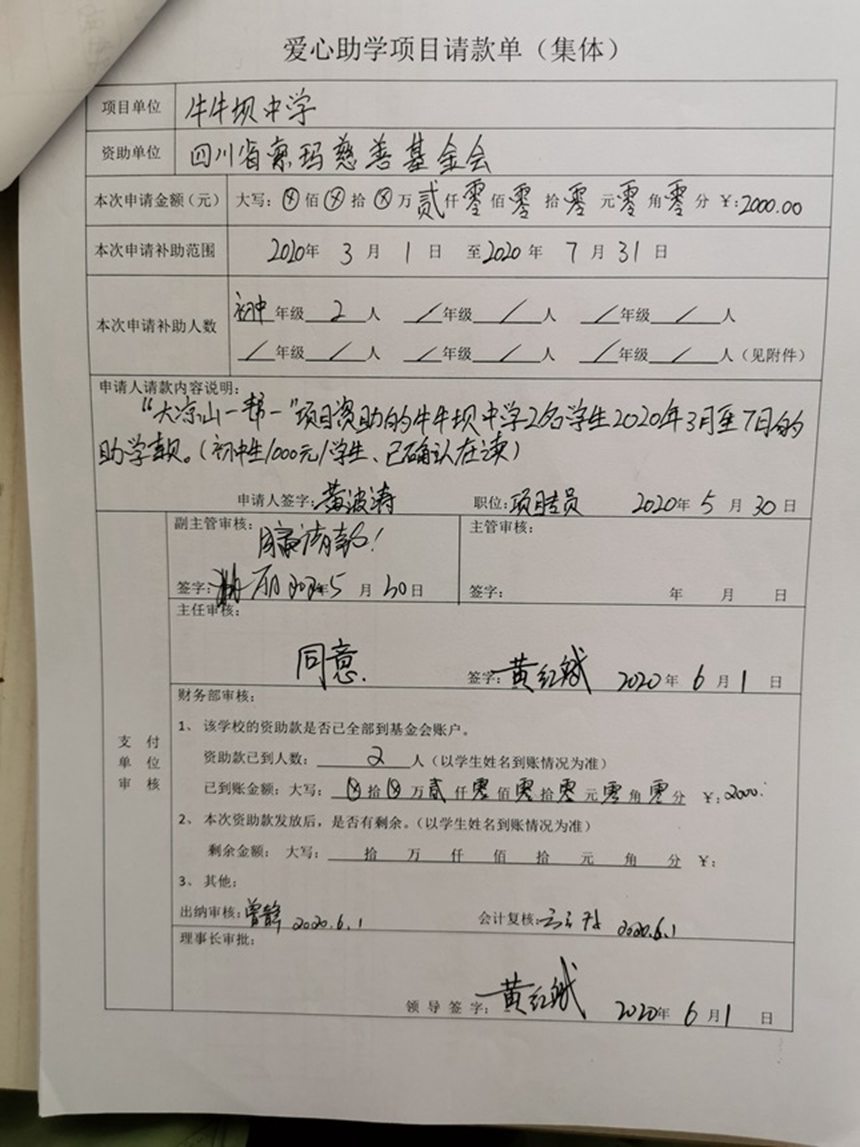 爱心助学项目请款单（集体）
项目单位 牛牛坝中学
资助单位 四川省索玛慈善基金会
本次申请金额（元） 大写：⊗佰⊗拾⊗万贰仟零佰零拾零元零角零分 ¥：2000.00
本次申请补助范围 2020年3月1日 至2020年7月31日
本次申请补助人数 初中年级2人 /年级/人 /年级/人
/年级/人 /年级/人 /年级/人（见附件）
申请人请款内容说明：
“大凉山一帮一”项目资助的牛牛坝中学2名学生2020年3月至7月的
助学款。（初中生1000元/学生、已确认在读）
申请人签字：黄波涛 职位：项目专员 2020年5月30日
副主管审核： 主管审核：
签字： 丽 2020年5月30日 签字： 年 月 日
主任审核：
同意.
签字：黄红斌 2020年6月1日
支付单位审核
财务部审核：
1、该学校的资助款是否已全部到基金会账户。
资助款已到人数：2人（以学生姓名到账情况为准）
已到账金额：大写：⊗拾⊗万贰仟零佰零拾零元零角零分 ¥：2000.
2、本次资助款发放后，是否有剩余。（以学生姓名到账情况为准）
剩余金额： 大写： 拾 万 仟 佰 拾 元 角 分 ¥：
3、其他：
出纳审核：曾 2020.6.1 会计复核： 2020.6.1
理事长审批：
领导签字：黄红斌 2020年6月1日